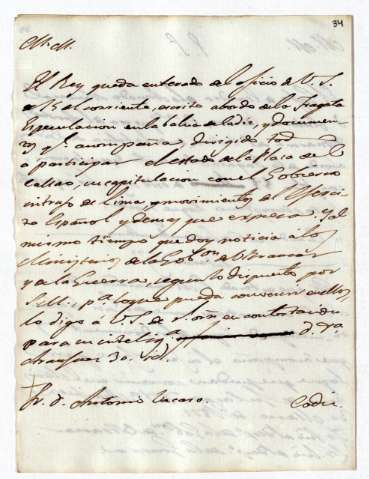 34
El Rey queda enterado del oficio de V. S.
el corriente, escrito abordo de la Fragata
Especulacion en la bahia de Cadiz, y documen
tos qe. acompaña, dirigido todo
a participar el estado de la Plaza de
Callao, su capitulacion con el Gobierno
intruso de Lima, y movimientos del Exerci
to Español y demas que expresa. Y al
mismo tiempo que doy noticia a los
Ministerios de la Gobon. de Ultramar
y de la Guerra, segun lo dispuesto por
S. M., pa. lo que pueda convenir en ellos,
lo digo a V. S. de
para su inteliga.
Aranjuez 30.
Sr. D. Antonio Cadiz.